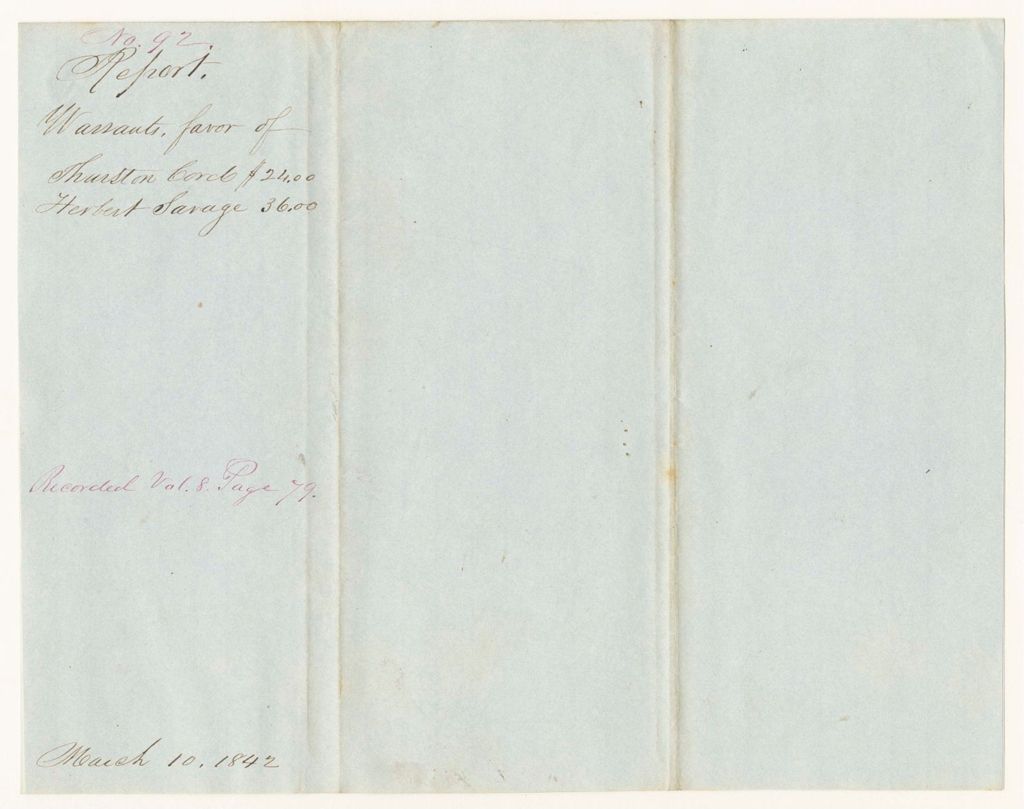 No. 92.
Report.
Warrants, favor of
Thurston $24.00
Herbert Savage 36.00
Recorded Vol. 8. Page 79.
March 10. 1842